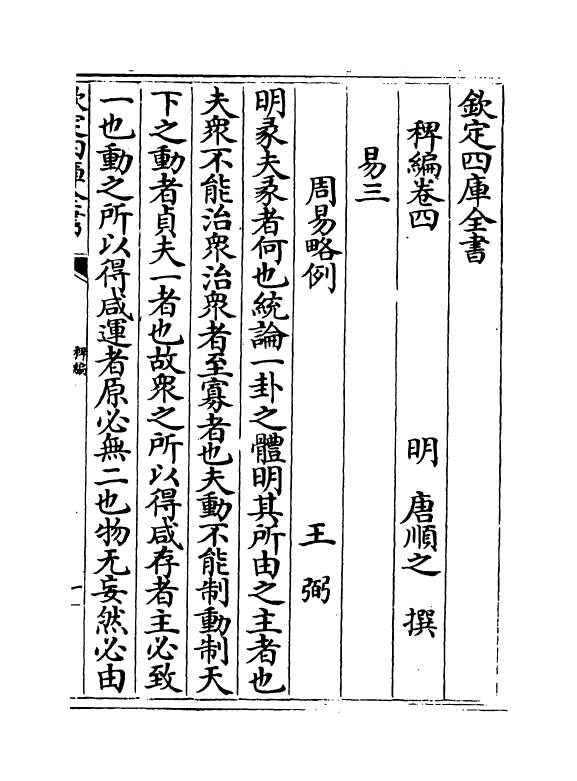 欽定四庫全書
稗編卷四
明 唐順之 撰
易三
周易略例 王弼
明彖夫彖者何也統論一卦之體明其所由之主者也
夫衆不能治衆治衆者至寡者也夫動不能制動制天
下之動者貞夫一者也故衆之所以得咸存者主必致
一也動之所以得咸運者原必無二也物无妄然必由
欽定四庫全書
稗編
一